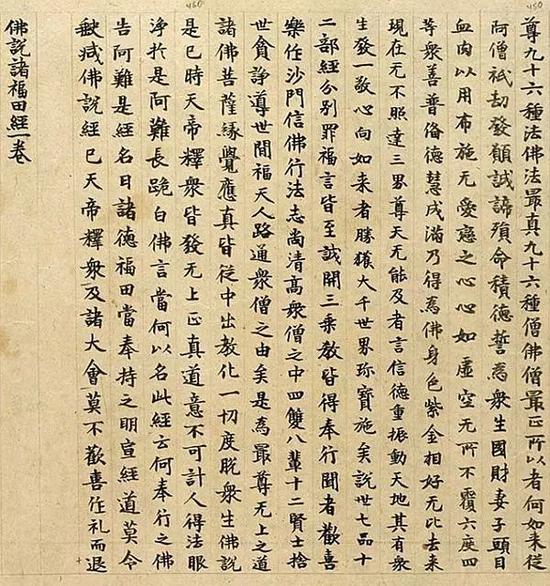 尊九十六種法佛法最真九十六種僧佛僧最正所以者何如来従
阿僧祇劫發願誠諦殞命積德誓為衆生國財妻子頭目
血肉以用布施无愛悋之心心如虛空无所不覆六度四
等衆善普俻德慧成滿乃得為佛身色紫金相好无比去来
現在无不照達三界尊天无能及者言信德重振動天地其有衆
生發一敬心向如来者勝獲大千世界珎寶施矣説世七品十
二部經分別罪福言皆至誠開三乗教皆得奉行聞者歡喜
樂作沙門信佛行法志尚清髙衆僧之中四雙八輩十二賢士捨
世貪諍導世間福天人路通衆僧之由矣是為最尊无上之道
諸佛菩薩緣覺應真皆従中出教化一切度脫衆生佛説
是已時天帝釋衆皆發无上正真道意不可計人得法眼
净扵是阿難長跪白佛言當何以名此經云何奉行之佛
告阿難是經名曰諸德福田當奉持之明宣經道莫令
缺减佛説經已天帝釋衆及諸大會莫不歡喜作礼而退
佛説諸福田經一卷
450